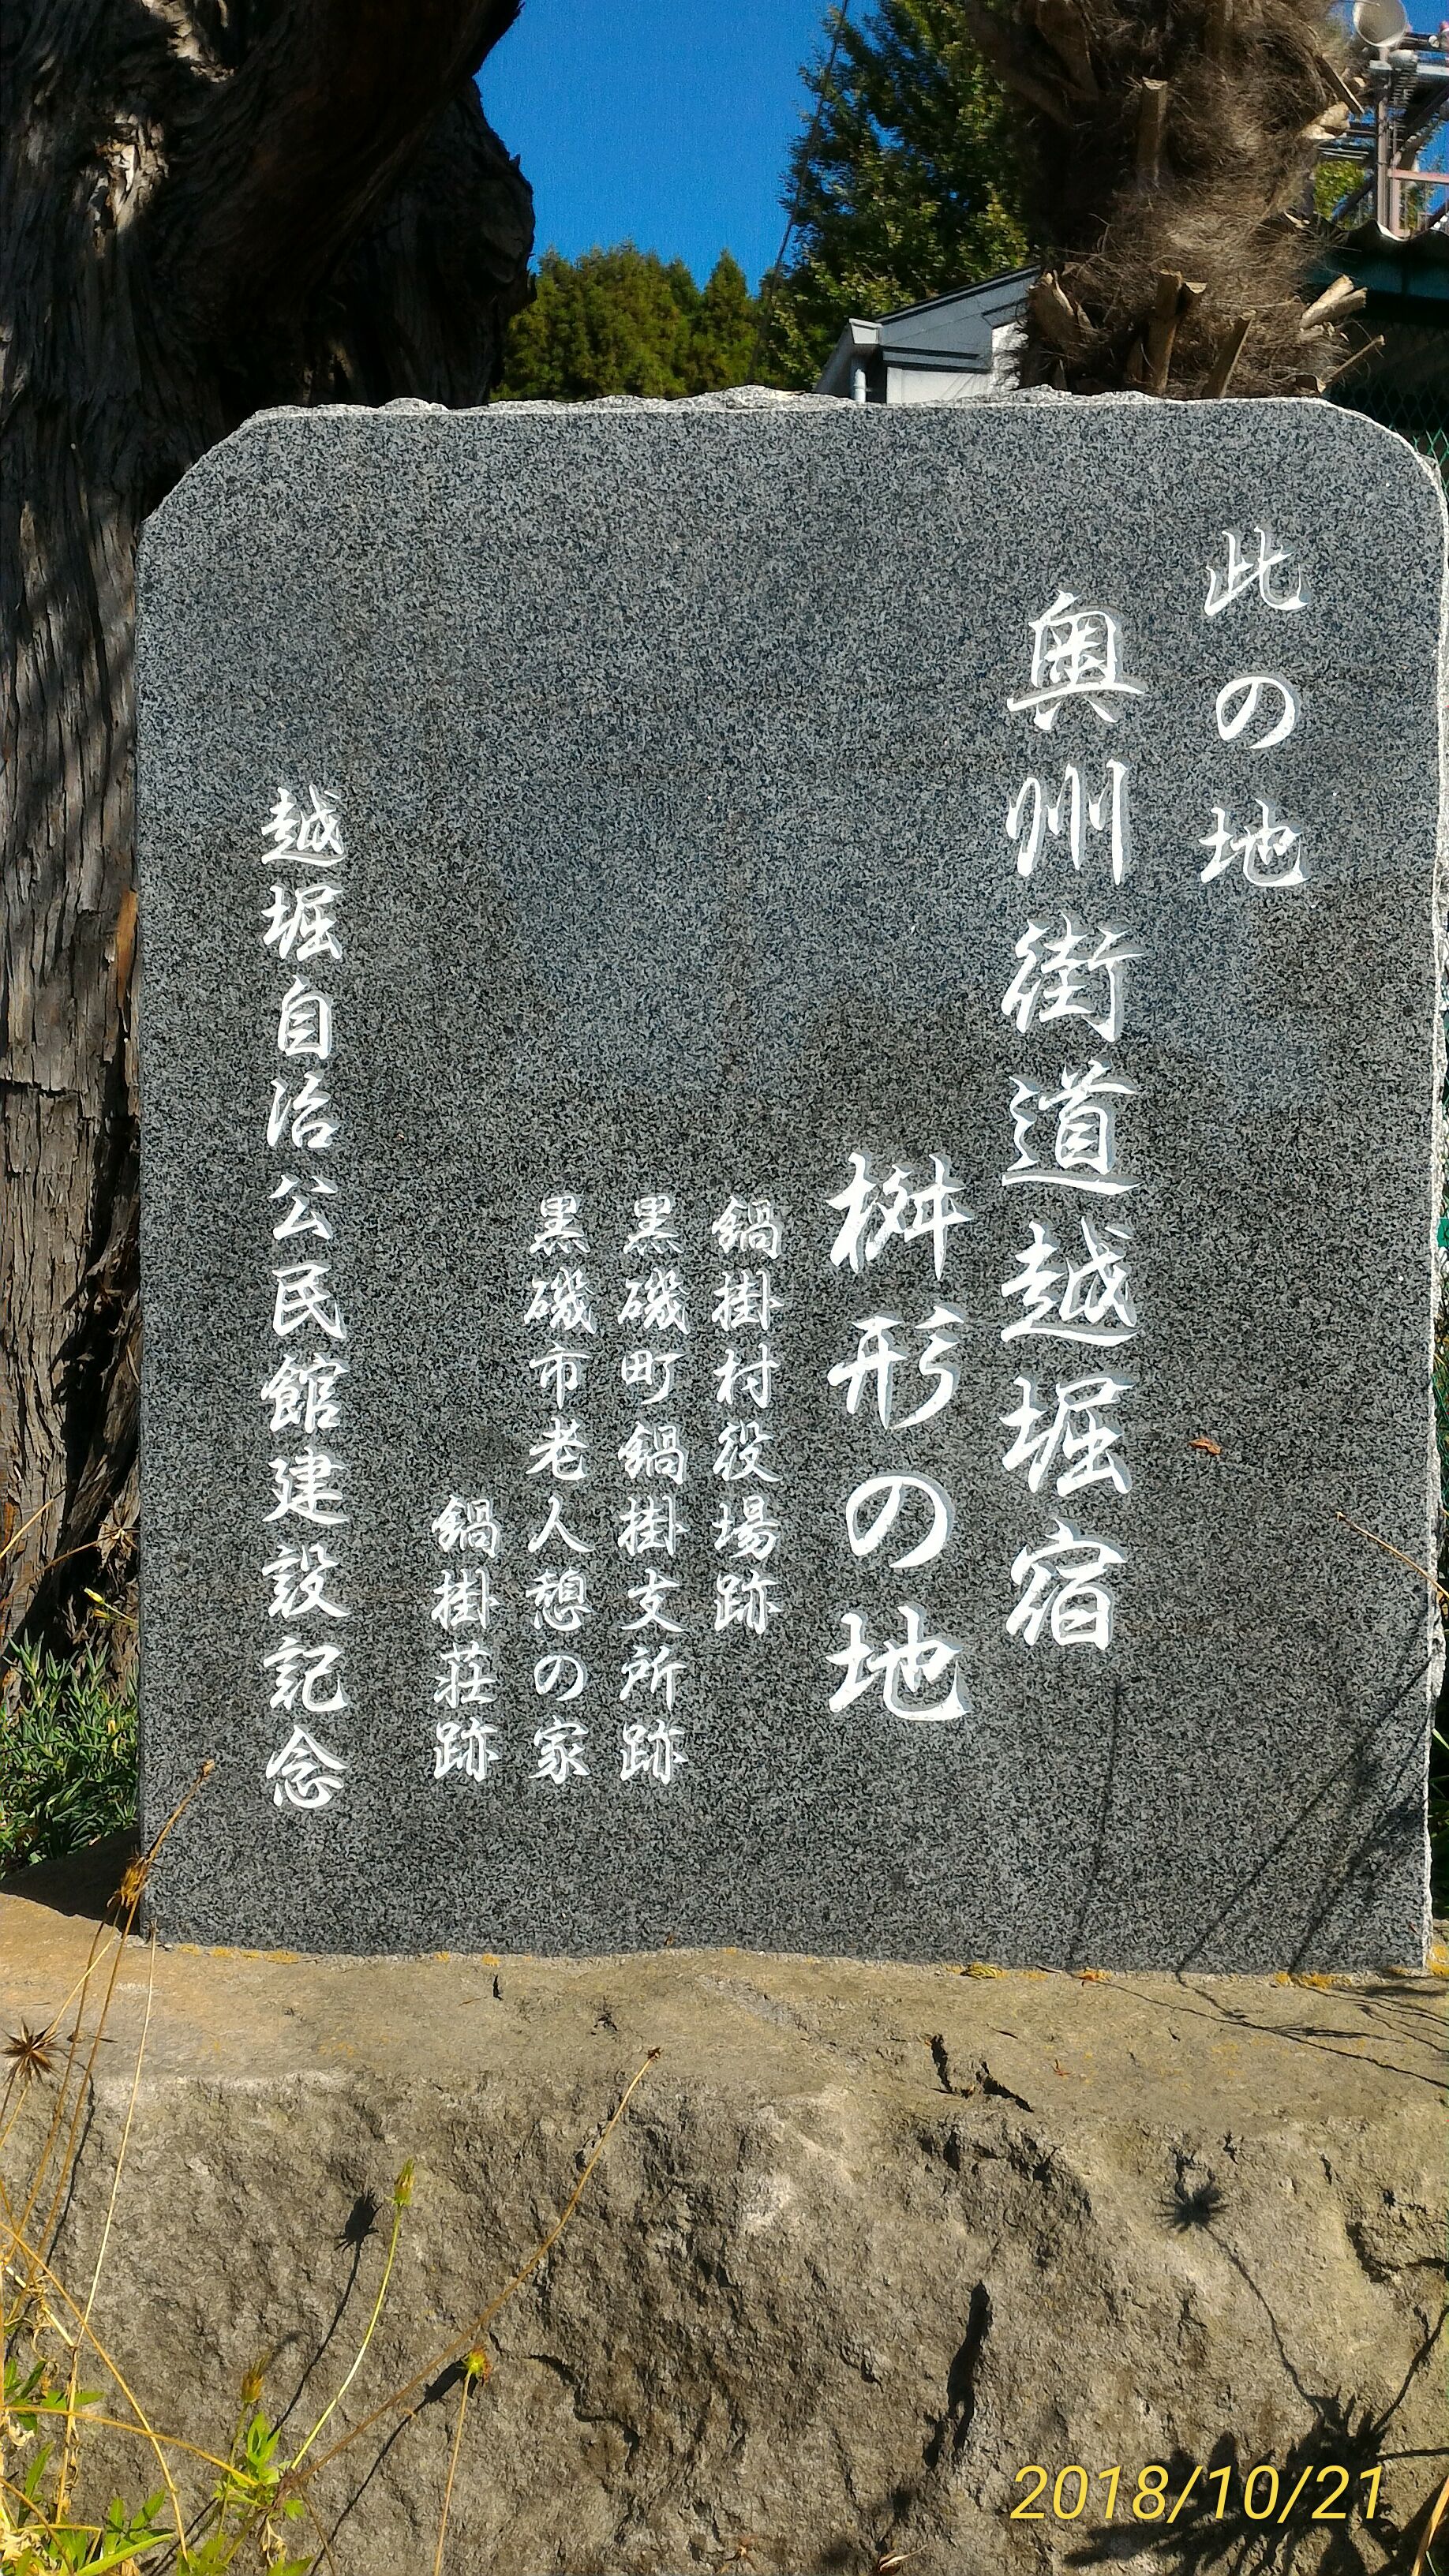 此の地
奥州街道越堀宿
桝形の地
鍋掛村役場跡
黒磯町鍋掛支所跡
黒磯市老人憩の家
鍋掛荘跡
越堀自治公民館建設記念
2018/10/21